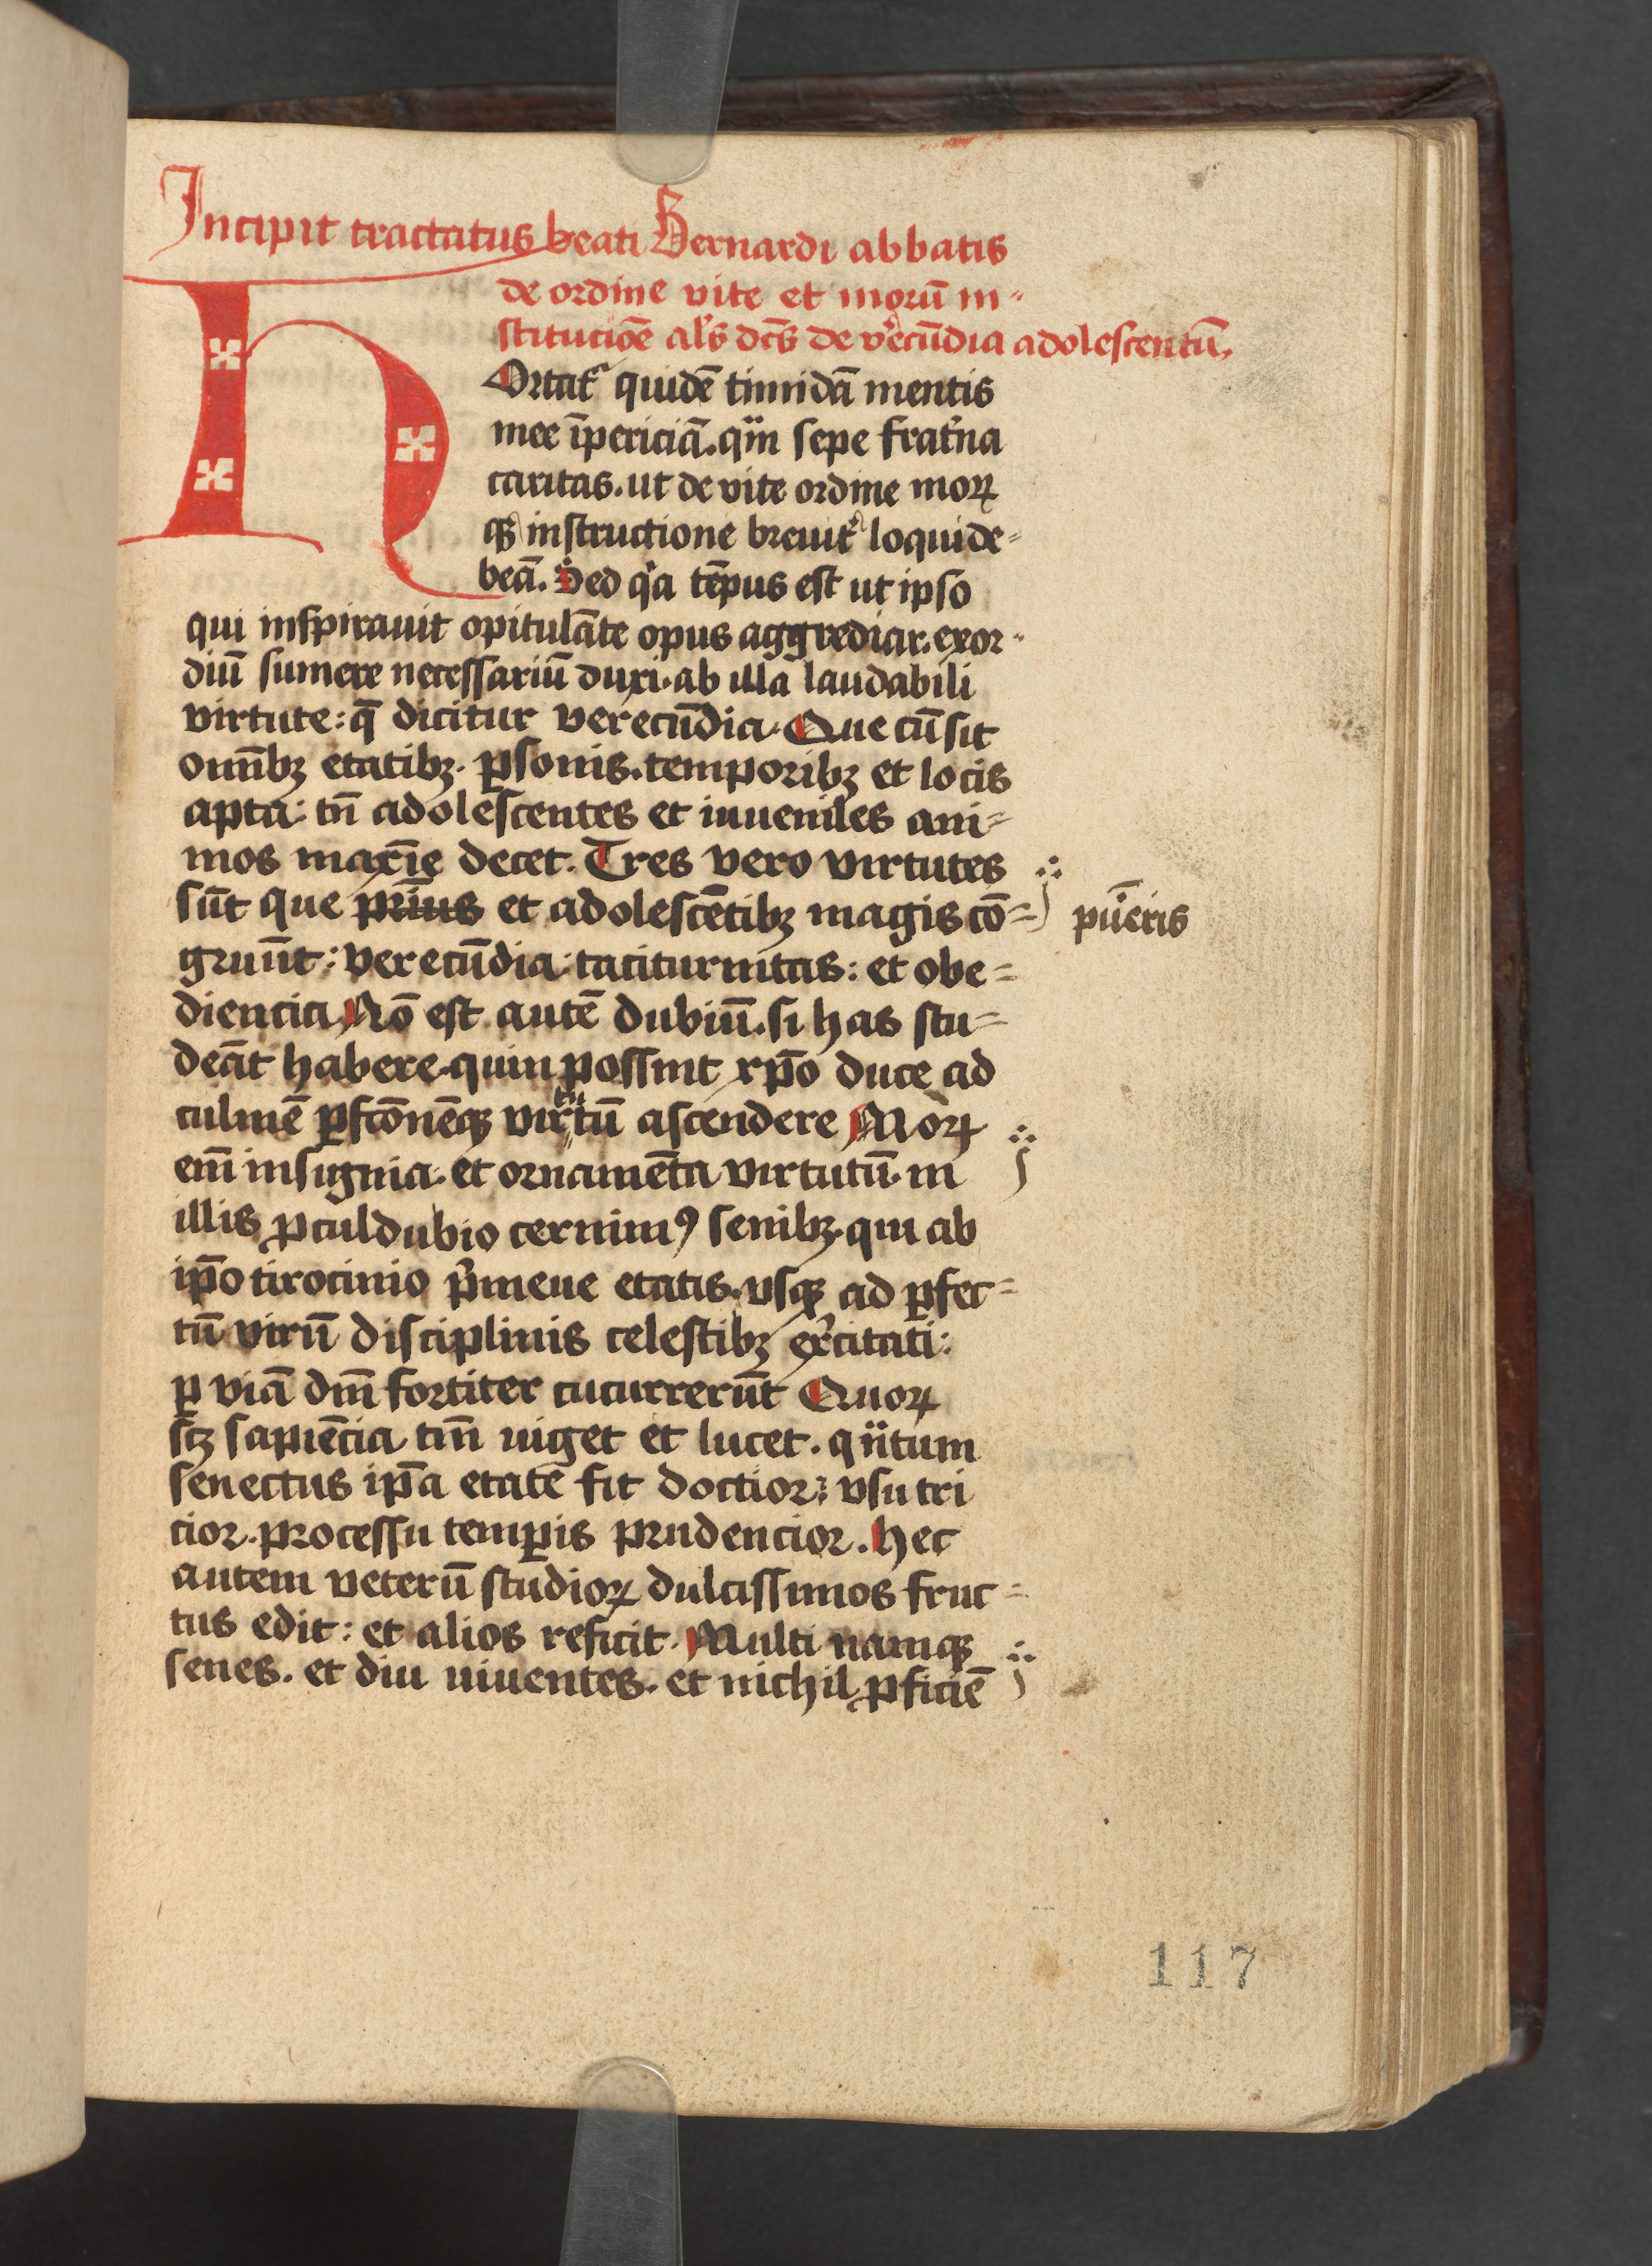 Incipit tractatus beati Bernardi abbatis
de ordine vite et morū in-
stitucōe al's dc̄s de v'ecūdia adolescentū
HOrtat᷑ quidē timidā mentis
mee īpericiā. qn̄ sepe frat'na
caritas. ut de vite ordine moꝝ
qꝫ instructione breuit᷑ loqui de-
beā. Sed qͥa tēpus est ut ipso
qui inspirauit opitulāte opus aggrediar. exor-
diū sumere necessariū duxi. ab illa laudabili
virtute: q̄ dicitur verecūdia. Que cū sit
omībꝫ etatibꝫ. ꝑsonis. temporibꝫ et locis
apta: tn̄ adolescentes et iuueniles ani-
mos maxīe decet. Tres vero virtutes
sūt que pri̅us et adolescētibꝫ magis cō-
pueris
gruūt: verecūdia: taciturnitas: et obe-
diencia Nō est autē dubiū. si has stu-
deāt habere. quin possint xp̄o duce ad
culmē ꝑfcōnēqꝫ virtutū ascendere Moꝝ
em̄ insignia. et ornamēta virtutū. in
illis ꝓculdubio cernimꝰ senibꝫ. qui ab
ip̄o tirocinio p'meue etatis. vsqꝫ ad ꝑfec-
tū virū disciplinis celestibꝫ ex'citati:
ꝑ viā dm̄ fortiter cucurrerūt Quoꝝ
scꝫ sapiēcia tm̄ uiget et lucet. qn̄tum
senectus ip̄a etate fit doctior: vsu tri
cior. processu temꝑis prudencior. Hec
autem veterū studioꝝ dulcissimos fruc-
tus edit: et alios reficit. Multi namqꝫ
senes. et diu uiuentes. et nichil ꝓficiē
117